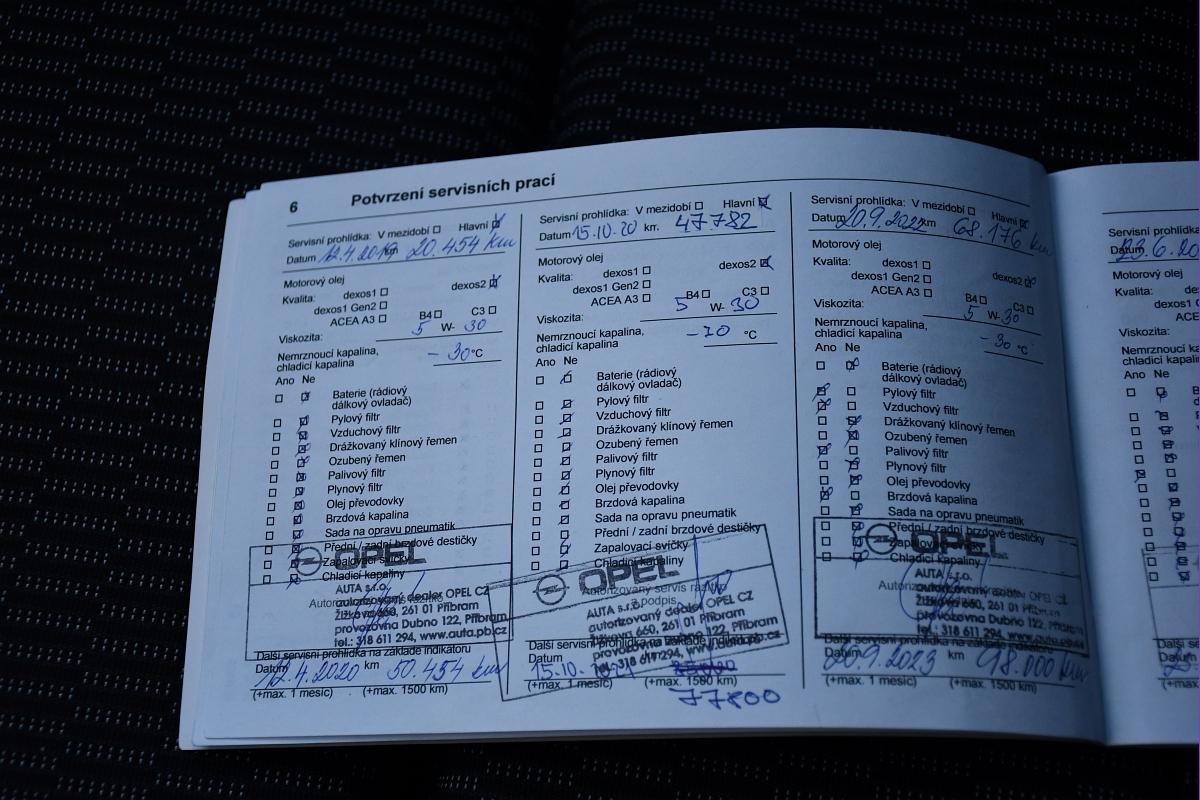 6 Potvrzení servisních prací
Servisní prohlídka: V mezidobí Hlavní
Datum 12.4.2019 km 20.454 km
Motorový olej
Kvalita: dexos1 dexos2
dexos1 Gen2
ACEA A3 B4 C3
Viskozita: 5 W- 30
Nemrznoucí kapalina,
chladicí kapalina - 30 °C
Ano Ne
Baterie (rádiový
dálkový ovladač)
Pylový filtr
Vzduchový filtr
Drážkovaný klínový řemen
Ozubený řemen
Palivový filtr
Plynový filtr
Olej převodovky
Brzdová kapalina
Sada na opravu pneumatik
Přední / zadní brzdové destičky
Zapalovací svíčky
Chladicí kapaliny
OPEL
AUTA s.r.o.
autorizovaný dealer OPEL CZ
Žižkova 660, 261 01 Příbram
provozovna Dubno 122, Příbram
tel.: 318 611 294, www.auta.pb.cz
Další servisní prohlídka na základě indikátoru
Datum 12.4.2020 km 50.454 km
(+max. 1 měsíc) (+max. 1500 km)
Servisní prohlídka: V mezidobí Hlavní
Datum 15.10.20 km 47.782
Motorový olej
Kvalita: dexos1 dexos2
dexos1 Gen2
ACEA A3 B4 C3
Viskozita: 5 W- 30
Nemrznoucí kapalina,
chladicí kapalina °C
Ano Ne
Baterie (rádiový
dálkový ovladač)
Pylový filtr
Vzduchový filtr
Drážkovaný klínový řemen
Ozubený řemen
Palivový filtr
Plynový filtr
Olej převodovky
Brzdová kapalina
Sada na opravu pneumatik
Přední / zadní brzdové destičky
Zapalovací svíčky
Chladicí kapaliny
OPEL
Autorizovaný servis razítko
a podpis
AUTA s.r.o.
autorizovaný dealer OPEL CZ
Žižkova 660, 261 01 Příbram
provozovna Dubno 122, Příbram
tel.: 318 611 294, www.auta.pb.cz
Další servisní prohlídka na základě indikátoru
Datum 15.10.
(+max. 1 měsíc) (+max. 1500 km)
77800
Servisní prohlídka: V mezidobí Hlavní
Datum 20.9.2022 km 68.176 km
Motorový olej
Kvalita: dexos1 dexos2
dexos1 Gen2
ACEA A3 B4 C3
Viskozita: 5 W- 30
Nemrznoucí kapalina,
chladicí kapalina - 30 °C
Ano Ne
Baterie (rádiový
dálkový ovladač)
Pylový filtr
Vzduchový filtr
Drážkovaný klínový řemen
Ozubený řemen
Palivový filtr
Plynový filtr
Olej převodovky
Brzdová kapalina
Sada na opravu pneumatik
Přední / zadní brzdové destičky
Zapalovací svíčky
Chladicí kapaliny
OPEL
AUTA s.r.o.
autorizovaný dealer OPEL CZ
Žižkova 660, 261 01 Příbram
provozovna Dubno 122, Příbram
tel.: 318 611 294, www.auta.pb.cz
Další servisní prohlídka na základě indikátoru
Datum 20.9.2023 km 98.000 km
(+max. 1 měsíc) (+max. 1500 km)
Servisní prohlídka
Datum 23.6.20
Motorový olej
Kvalita: dexos
dexos1 G
ACEA
Viskozita:
Nemrznoucí kapa
chladicí kapalina
Ano Ne
Další se
Datum
(+max.